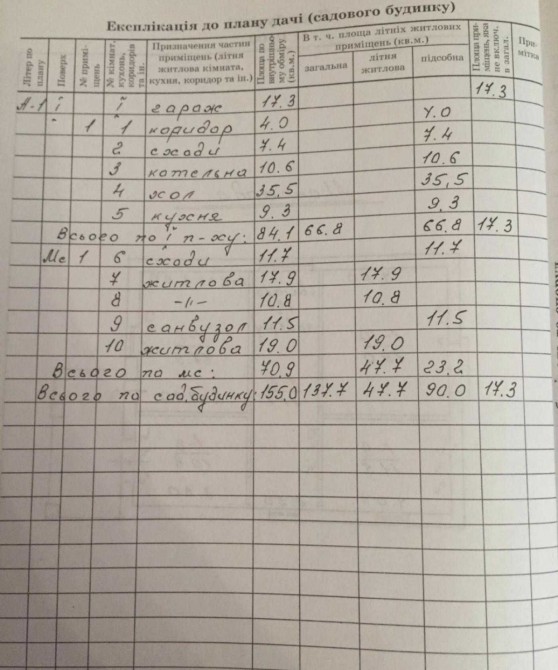 Експлікація до плану дачі (садового будинку)
Літер по плану | Поверх | № приміщень | № кімнат, кухонь, коридорів та ін. | Призначення частин приміщень (літня житлова кімната, кухня, коридор та ін.) | Площа по внутрішньому обміру (кв.м.) | В т. ч. площа літніх житлових приміщень (кв.м.) | загальна | літня житлова | підсобна | Примітка
А-1 ї ї гараж 17.3 17.3
1 1 коридор 4.0 4.0
2 сходи 7.4 7.4
3 котельна 10.6 10.6
4 хол 35,5 35,5
5 кухня 9.3 9,3
Всього по ї п-ху: 84.1 66.8 66.8 17.3
Мс 1 6 сходи 11.7 11.7
7 житлова 17.9 17.9
8 -//- 10.8 10.8
9 санвузол 11.5 11.5
10 житлова 19.0 19.0
Всього по мс: 70.9 47.7 23.2
Всього по сад.будинку: 155.0 137.7 47.7 90.0 17.3